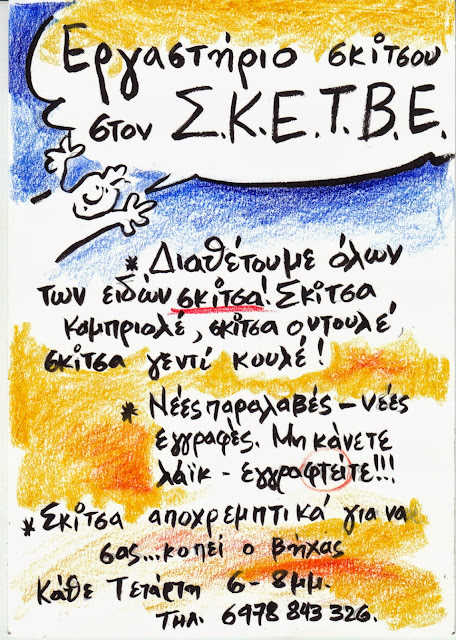 Εργαστήριο σκίτσου
στον Σ.Κ.Ε.Τ.Β.Ε.
* Διαθέτουμε όλων
των ειδών σκίτσα! Σκίτσα
καμπριολέ, σκίτσα οντουλέ,
σκίτσα γεντί κουλέ!
* Νέες παραλαβές - νέες
εγγραφές. Μη κάνετε
λάϊκ - εγγραφτείτε!!!
* Σκίτσα αποχρεμπτικά για να
σας...κοπεί ο βήχας
Κάθε Τετάρτη 6-8μμ.
Τηλ. 6978 843 326.